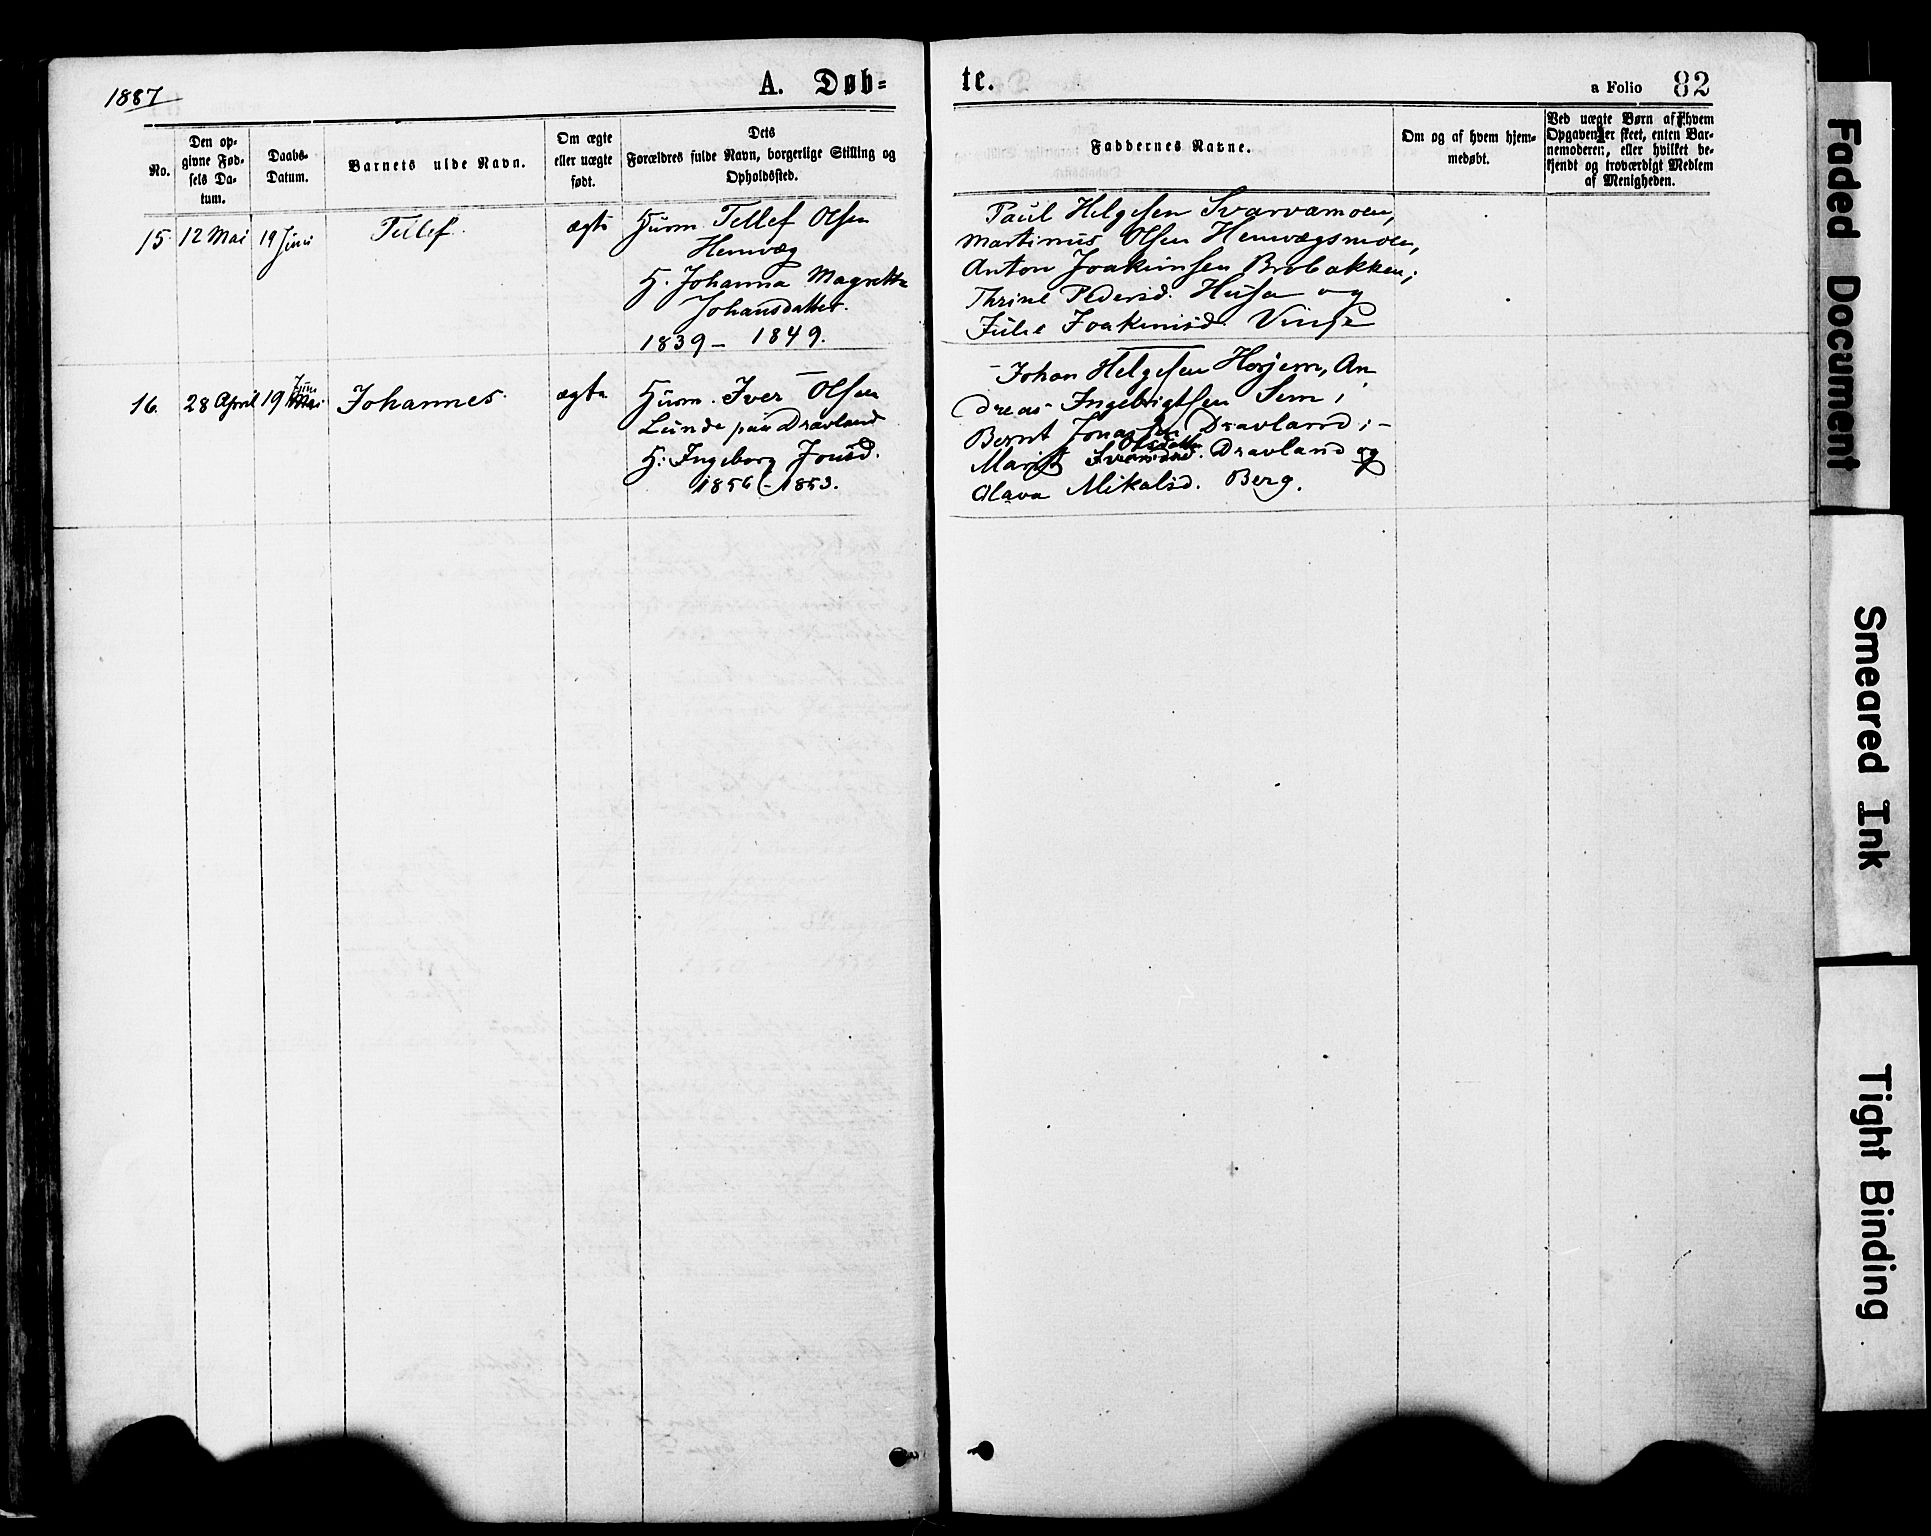 1887
A. Døb=
te.
a Folio 82
No.
Den op-
givne Fød-
sels Da-
tum.
Daabs-
Datum.
Barnets ulde Navn.
Om ægte
eller uægte
født.
Dets
Forældres fulde Navn, borgerlige Stilling og
Opholdssted.
Faddernes Navne.
Om og af hvem hjem-
medøbt.
Ved uægte Børn af hvem
Opgaven er skeet, enten Bar-
nemoderen, eller hvilket be-
kjendt og troværdigt Medlem
af Menigheden.
15 12 Mai 19 Juni Tellef ægte
Husm. Tellef Olsen
Hemvæg
H. Johanna Magrethe
Johansdatter.
1839 - 1849.
Paul Helgesen Svarvamoen,
Martinus Olsen Hemvægsmoen,
Anton Joakimsen Brobakken;
Thrine Pedersd. Husa og
Julie Joakimsd. Vinje
16. 28 April 19 Juni Mai Johannes. ægte
Husm. Iver Olsen
Lunde paa Dravland
H: Ingeborg Jonsd.
1856 - 1853.
Johan Helgesen Horjem, An
dreas Ingebrigtsen Sem;
Bernt Jonassen Dravland; -
Olsdatter
Marit Iversdad. Dravland og
Olava Mikalsd. Berg.
Faded Document
Smeared Ink
Tight Binding